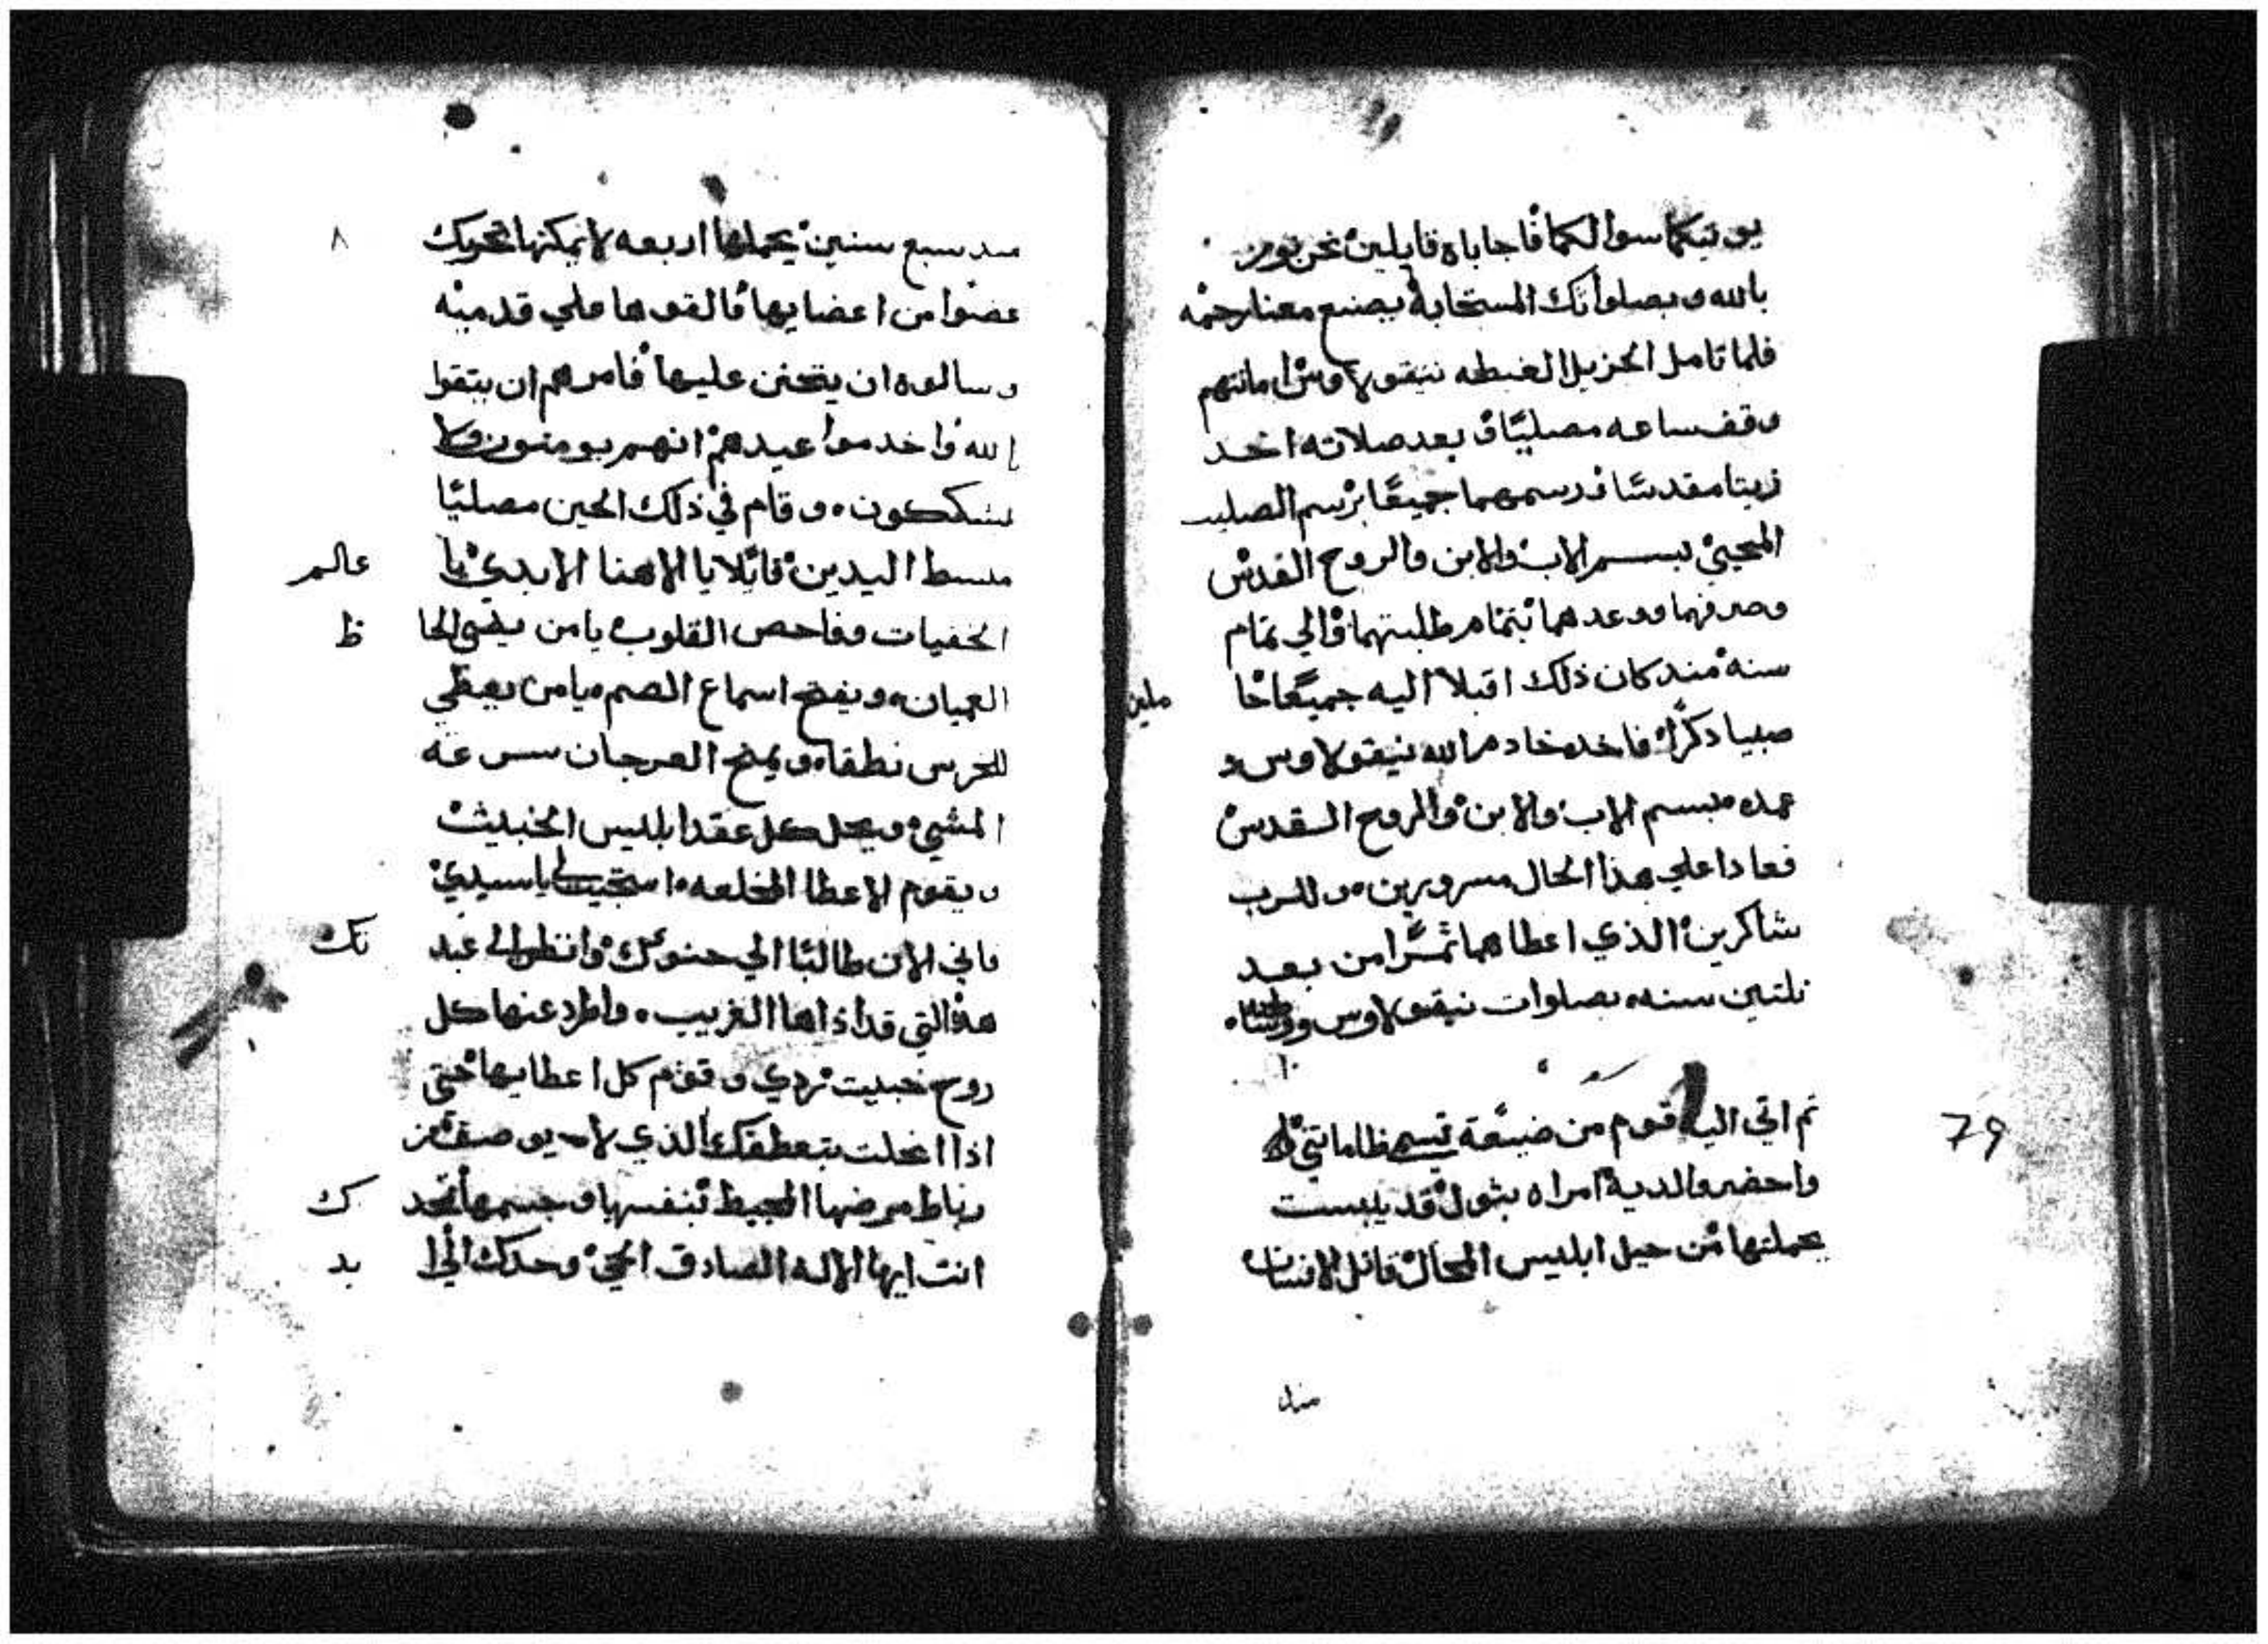 يوتيكما سوالكما فاجاباه قايلين نحن نومن
بالله وبصلواتك المستجابة يصنع معنا رحمه
فلما تامل الجزيل الغبطه نيقولاوس امانتهم
وقف ساعه مصليًا وبعد صلاته اخد
زيتا مقدسًا ورسمهما جميعًا برسم الصليب
المحيي بسم الاب والابن والروح القدس
وصرفهما ووعدهما بتمام طلبتهما والي تمام
سنة مند كان ذلك اقبلا اليه جميعًا حا
ملين
صبيا دكرًا فاخده خادم الله نيقولاوس و
عمده بسم الاب والابن والروح القدس
فعادا علي هذا الحال مسرورين وللرب
شاكرين الذي اعطاهما ثمرًا من بعد
تلتين سنه بصلوات نيقولاوس
تم اتي اليه قوم من ضيعة تسمي
واحضروا لديه امراه بتول قد يبست
بجملتها من حيل ابليس المحال قاتل الانسان
مند
79
مند سبع سنين يحملها اربعه لا يمكنها تحريك
٨
عضوا من اعضايها فالقوها علي قدميه
وسالوه ان يتحنن عليها فامرهم ان يتقوا
الله واخدموا عيدهم انهم يومنون ولا
يشككون وقام في ذلك الحين مصليًا
مبسط اليدين قايلا يا الاهنا الابدي يا
عالم
الخفيات وفاحص القلوب يا من يضي الحا
ظ
العميان ويفتح اسماع الصم يا من يعطي
للخرس نطقا ويمنح العرجان سرعه
المشي ويحل كل عقد ابليس الخبيث
ويقوم الاعطا المخلعه استجيب لي يا سيدي
فاني الان طالبًا الي حنوك وانظر الي عبد
تك
هذه التي قد اذاها الغريب واطرد عنها كل
روح خبيت ردي وقوم كل اعطايها حتي
اذا انحلت بتعطفك الذي لا يوصف من
رباط مرضها المحيط بنفسها وجسمها تمجد
ك
انت ايها الاله الصادق المحي وحدك الي ا
بد